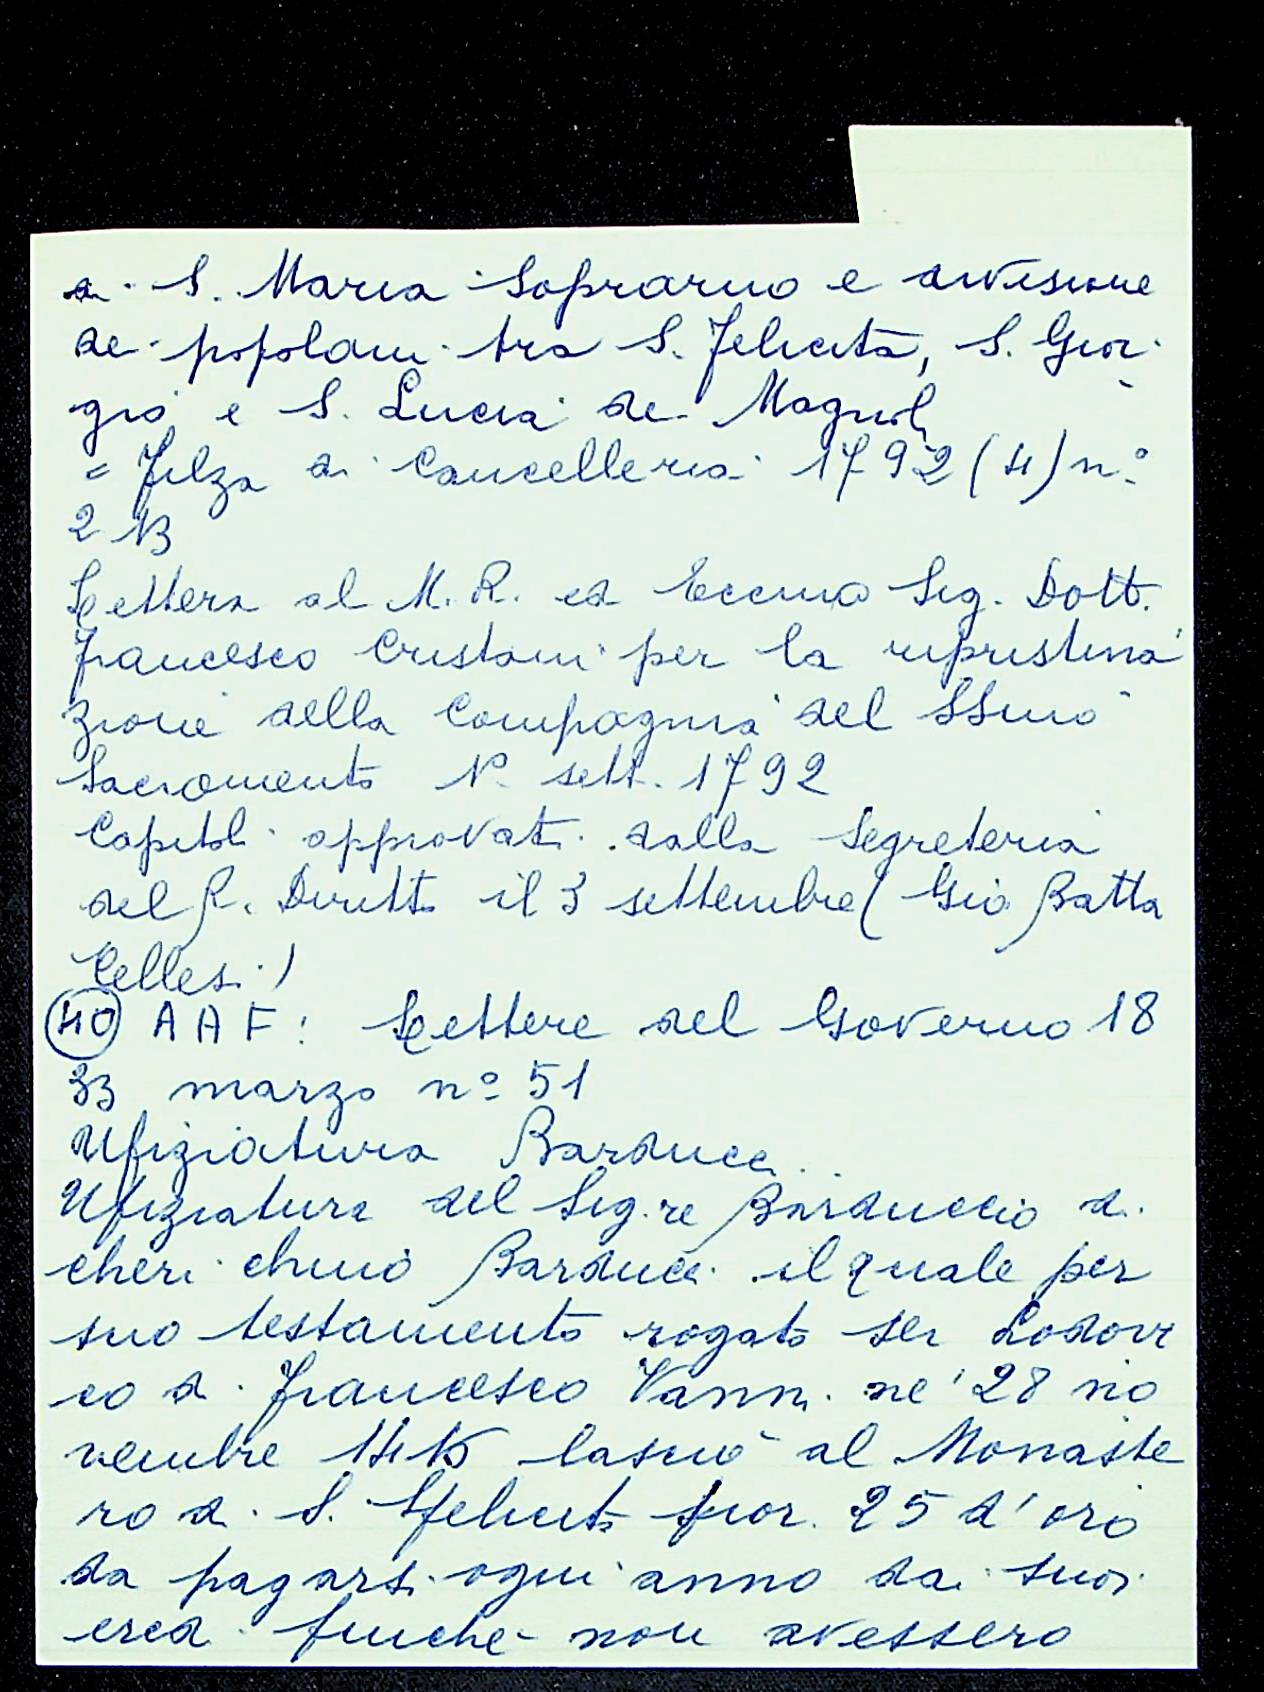 di S. Maria Soprarno e divisione
dei popolani tra S. Felicita, S. Gior
gio e S. Lucia dei Magnoli
= Filza di Cancelleria 1792 (4) n°
213
Lettera al M. R. ed Eccmo Sig. Dott.
Francesco Cristani per la ripristina
zione della Compagnia del SSmo
Sacramento 1° sett. 1792
Capitoli approvati dalla Segreteria
del R. Diritto il 3 settembre (Gio Batta
Cellesi)
(40) AAF: Lettere del Governo 18
33 marzo n° 51
Ufiziatura Barducci
Ufiziatura del Sig.re Barduccio di
cheri chino Barducci il quale per
suo testamento rogato ser Lodovi
co di Francesco Vanni ne' 28 no
vembre 1415 lasciò al Monaste
ro di S. Sfelicita fior. 25 d'oro
da pagarsi ogni anno dai suoi
eredi finché non avessero